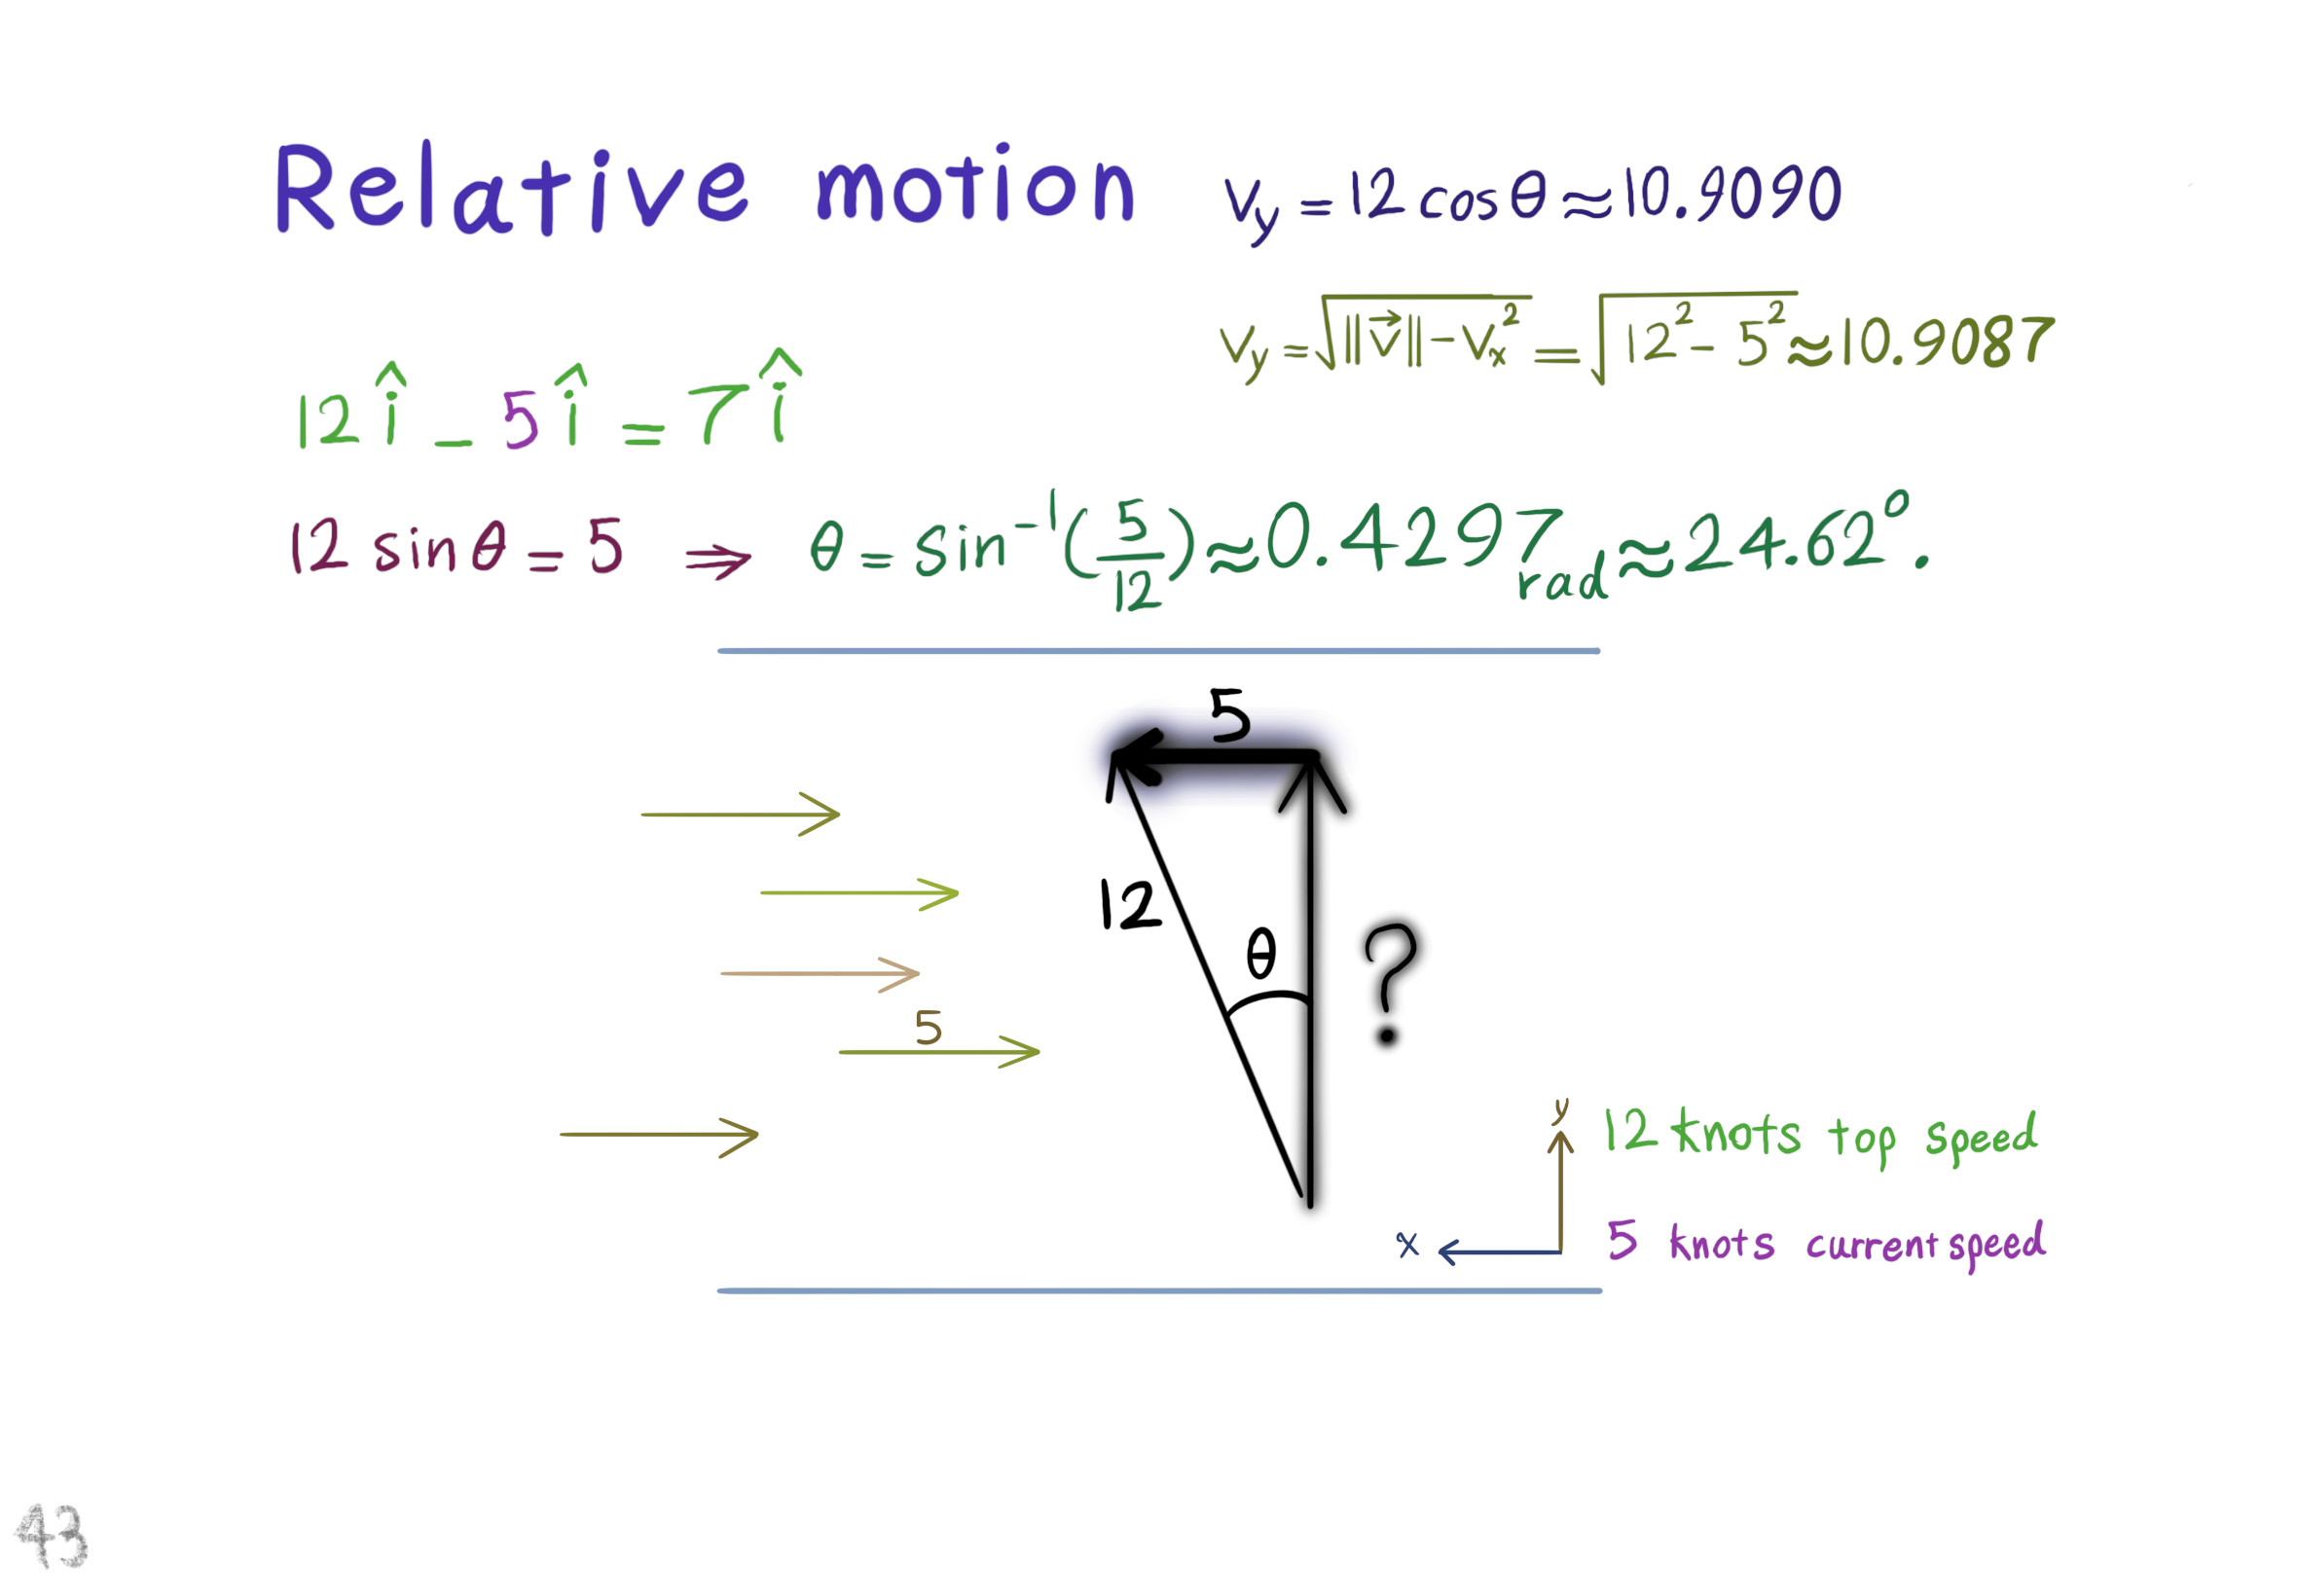 Relative motion
v_y = 12 cos θ ≈ 10.9090
v_y = √(‖v⃗‖ - v_x²) = √(12² - 5²) ≈ 10.9087
12 î - 5 î = 7 î
12 sin θ = 5 ⇒ θ = sin⁻¹(5/12) ≈ 0.4297 rad ≈ 24.62°.
5
12
θ
?
5
y
x
12 knots top speed
5 knots current speed
43